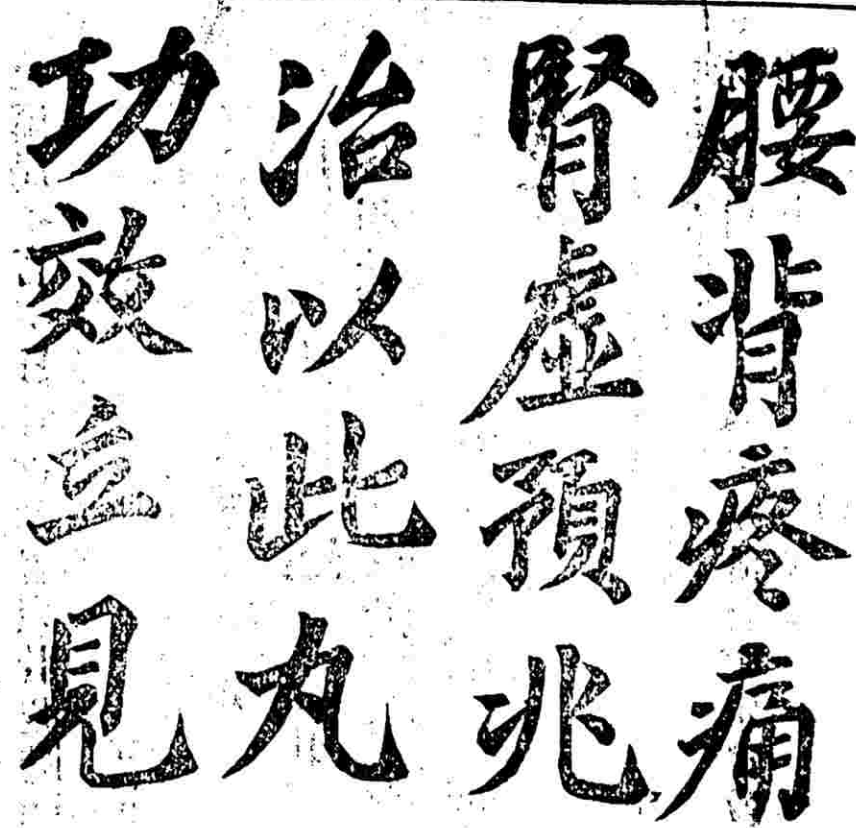 腰背疼痛
腎虛預兆,
治以此丸
功效立見